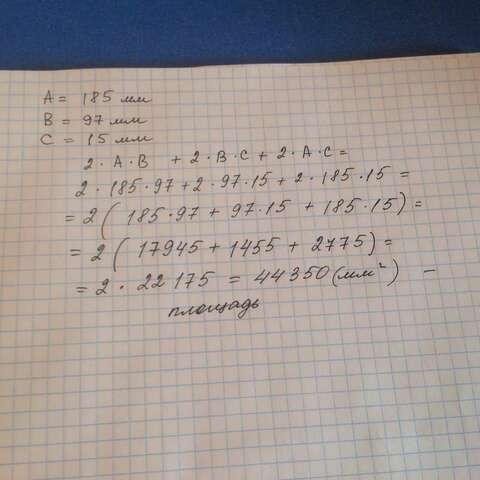 A = 185 мм
B = 97 мм
C = 15 мм
2 · A · B + 2 · B · C + 2 · A · C =
2 · 185 · 97 + 2 · 97 · 15 + 2 · 185 · 15 =
= 2 ( 185 · 97 + 97 · 15 + 185 · 15 ) =
= 2 ( 17945 + 1455 + 2775 ) =
= 2 · 22175 = 44350 (мм²) –
площадь